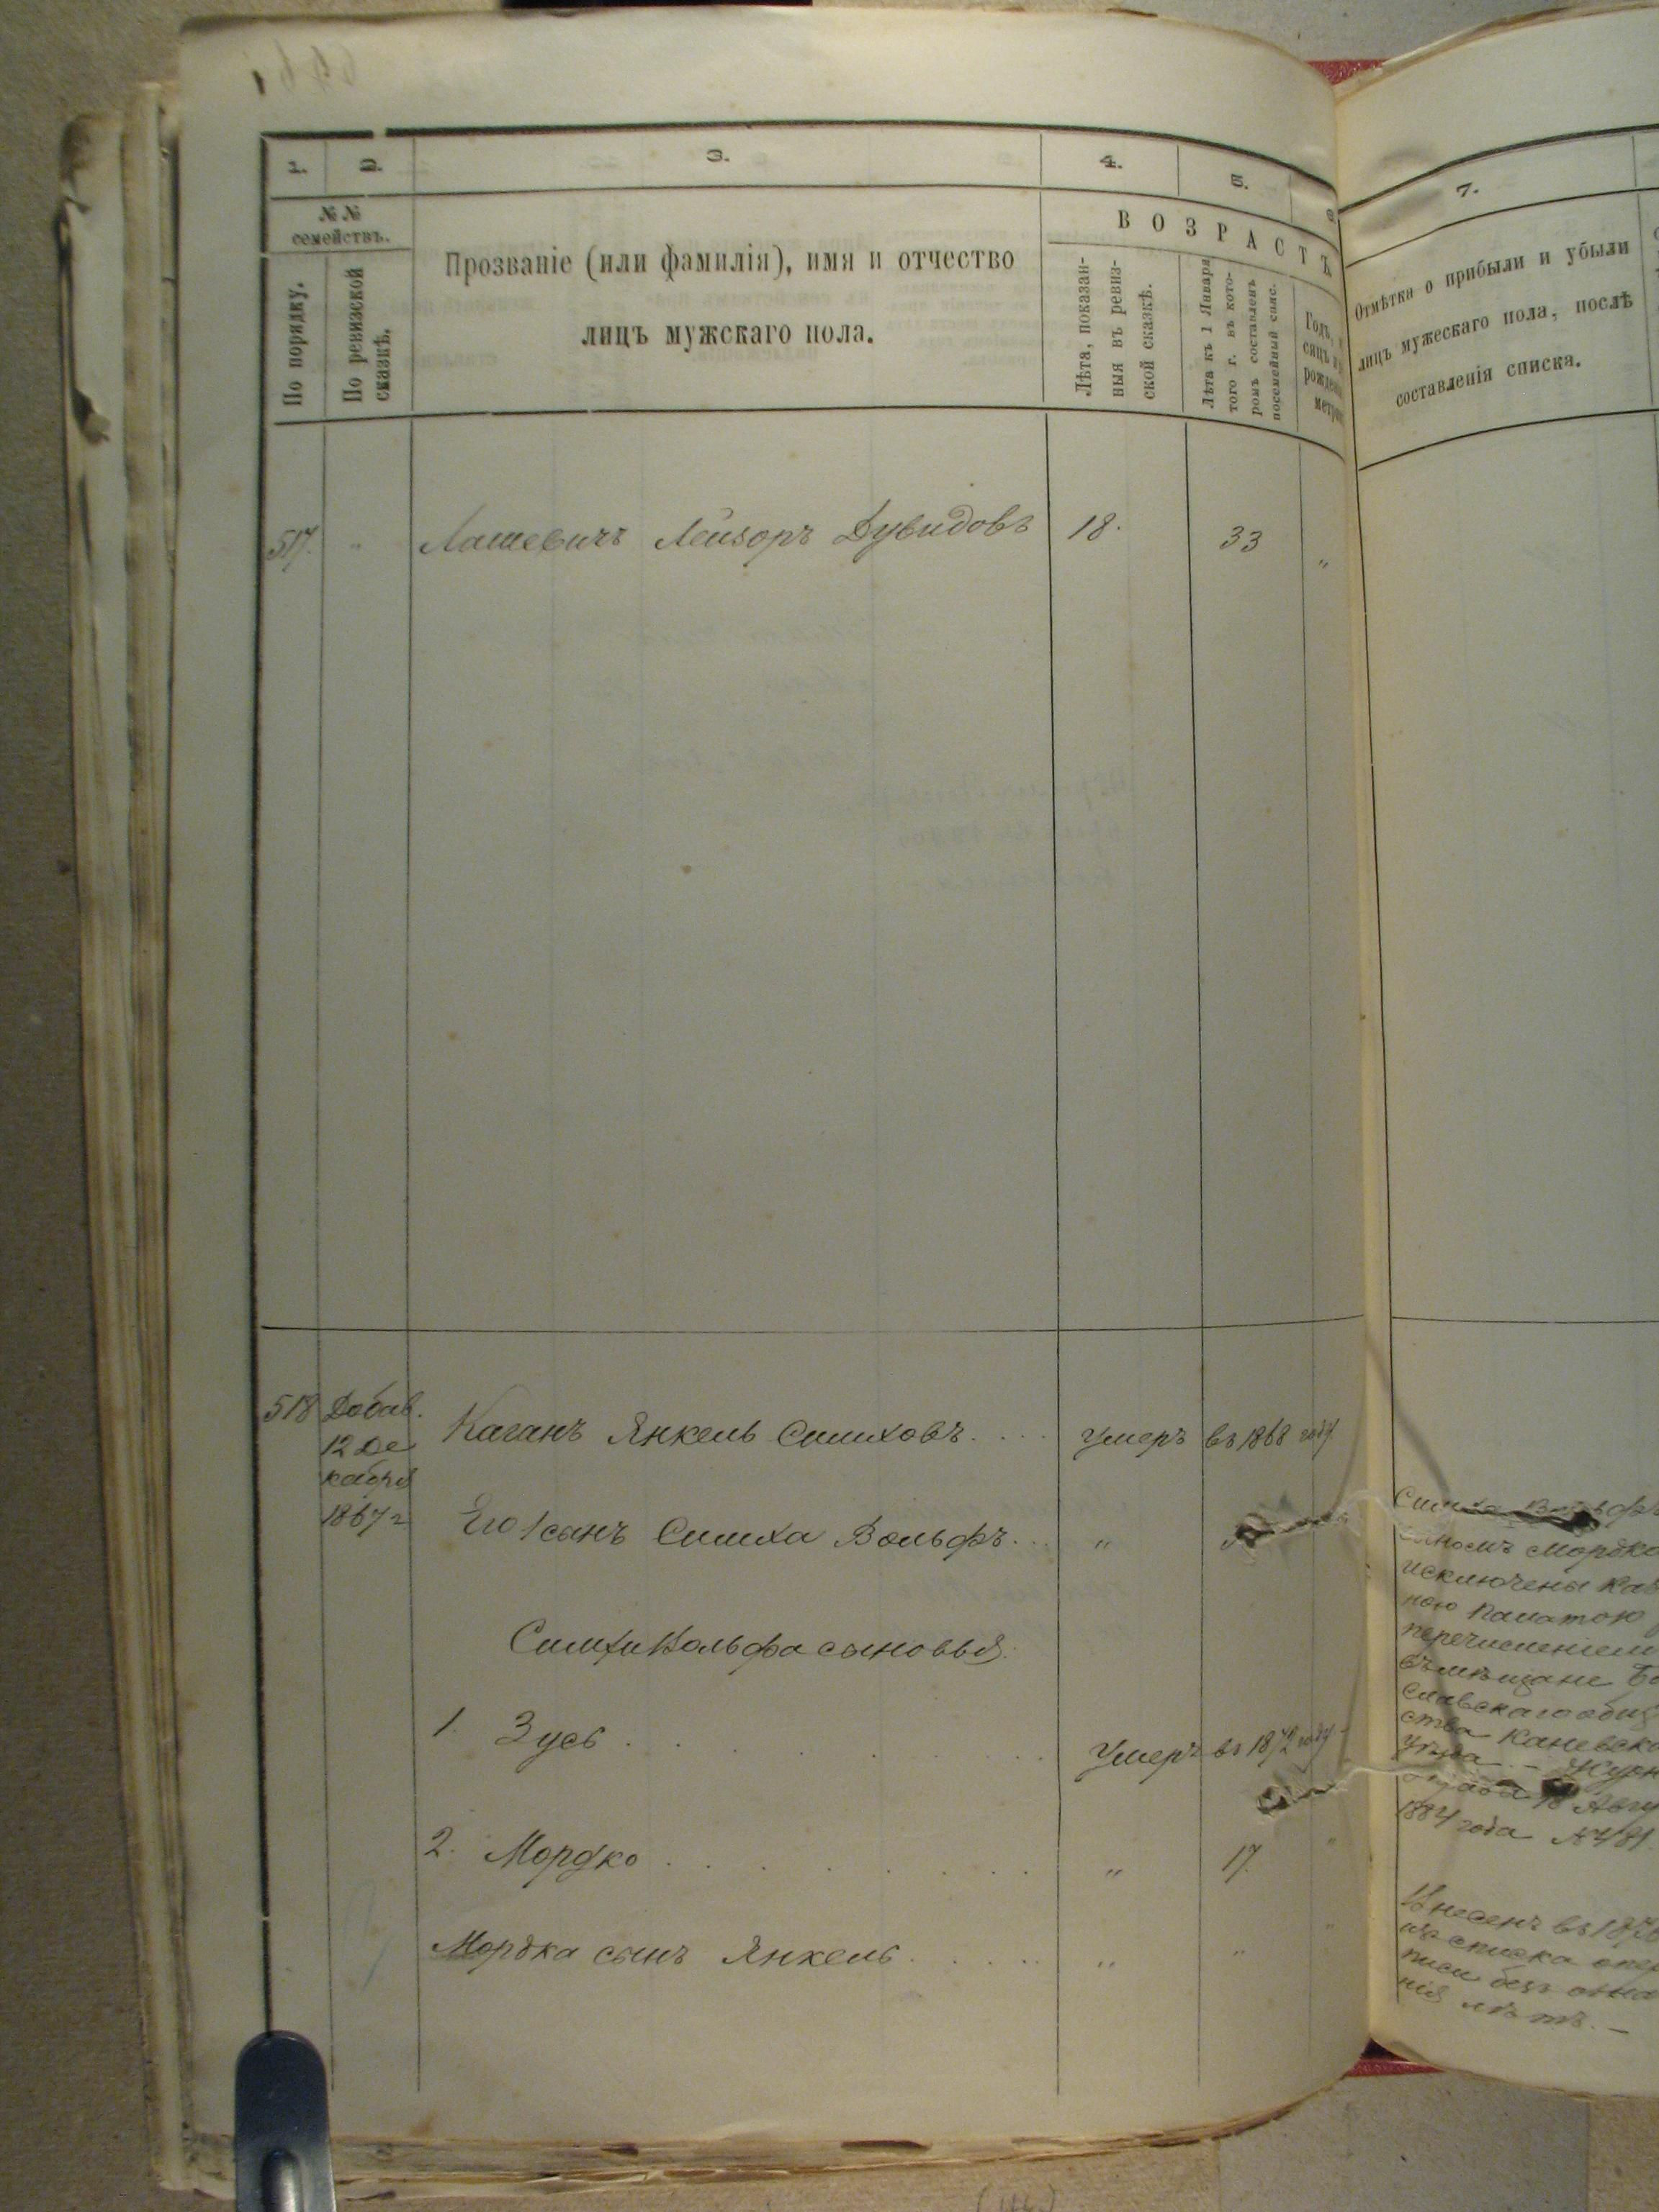 1.
2.
3.
4.
5.
6.
7.
№ №
семействъ.
По порядку.
По ревизской
сказкѣ.
Прозваніе (или фамилія), имя и отчество
лицъ мужскаго пола.
ВОЗРАСТЪ
Лѣта, показан-
ныя въ ревиз-
ской сказкѣ.
Лѣта къ 1 Января
того г. въ кото-
ромъ составленъ
посемейный спис.
Годъ,
сяцъ и
рожден
метри
Отмѣтка о прибыли и убыли
лицъ мужескаго пола, послѣ
составленія списка.
517. " Лашевичъ Лейзоръ Дувидовъ 18. 33 "
518 Добав.
12 Де
кабря
1867 г
Каганъ Янкель Симховъ.... Умеръ въ 1868 году.
Его 1 сынъ Симха Вольфъ... "
Симхи Вольфа сыновья:
1. Зусь........ Умеръ въ 1872 году.-
2. Мордко........ " 17. "
Мордка сынъ Янкель..... " " "
Симха Вольфъ
сыномъ Мордко
исключены Каз
ною Палатою
перечисленіем
въ мѣщане Бо
славскаго общ
ства Каневско
уѣзда.- Журн
18 Авгу
1884 года № 481.
Внесенъ въ 187
изъ списка
писи безъ
нія лѣтъ.-